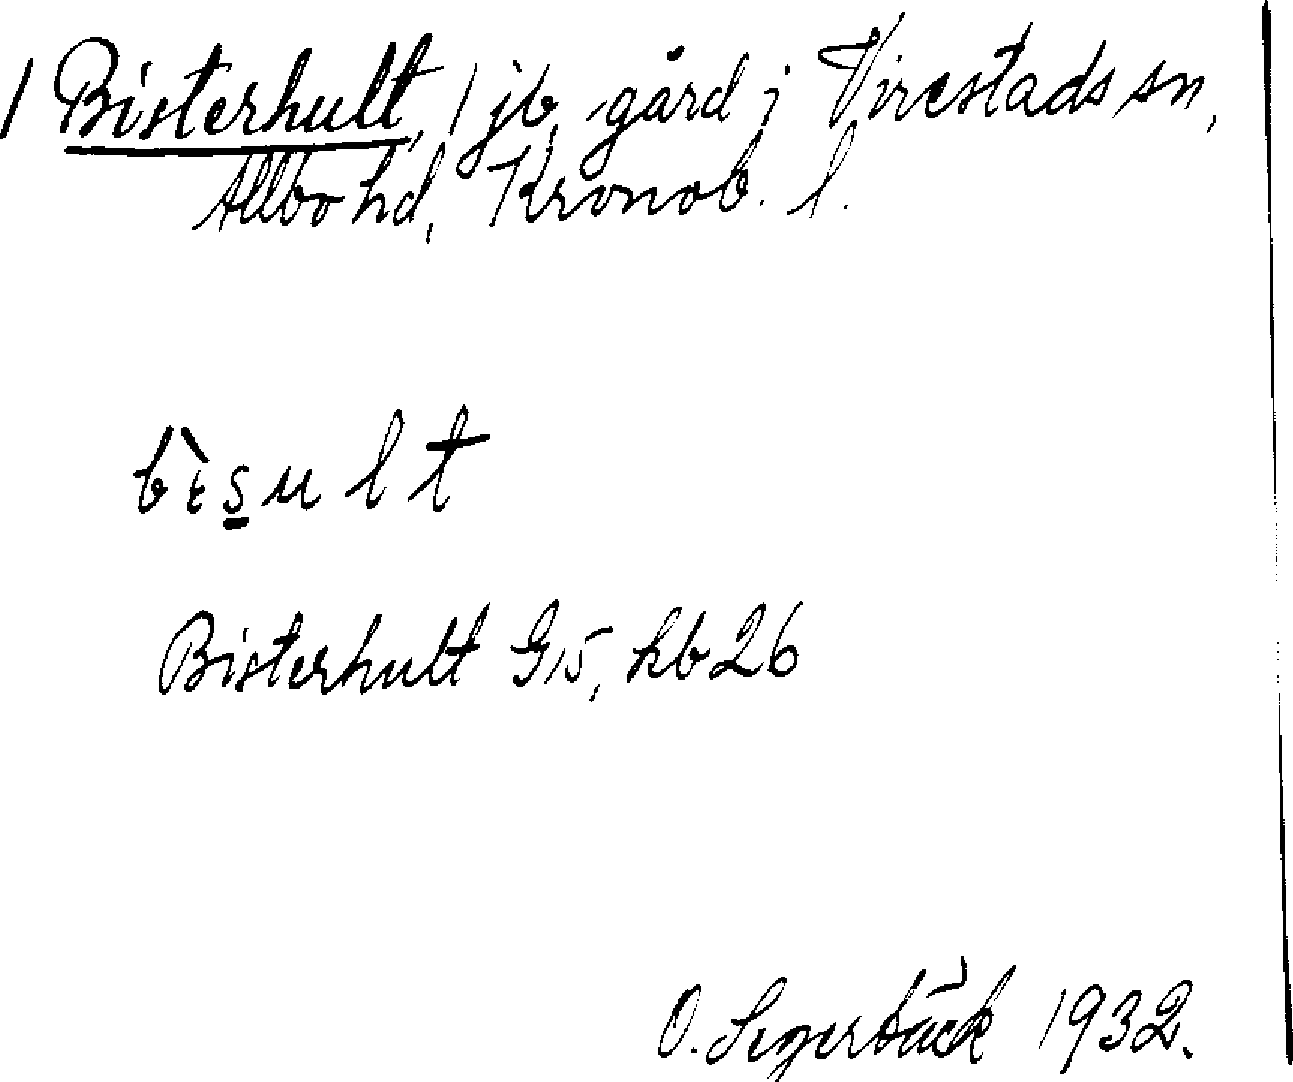 / Bisterhult, 1 jb. gård i Virestads sn,
Allbo hd, Kronob. l.
bìs̲ult
Bisterhult G15, hb 26
O. Segerbäck 1932.